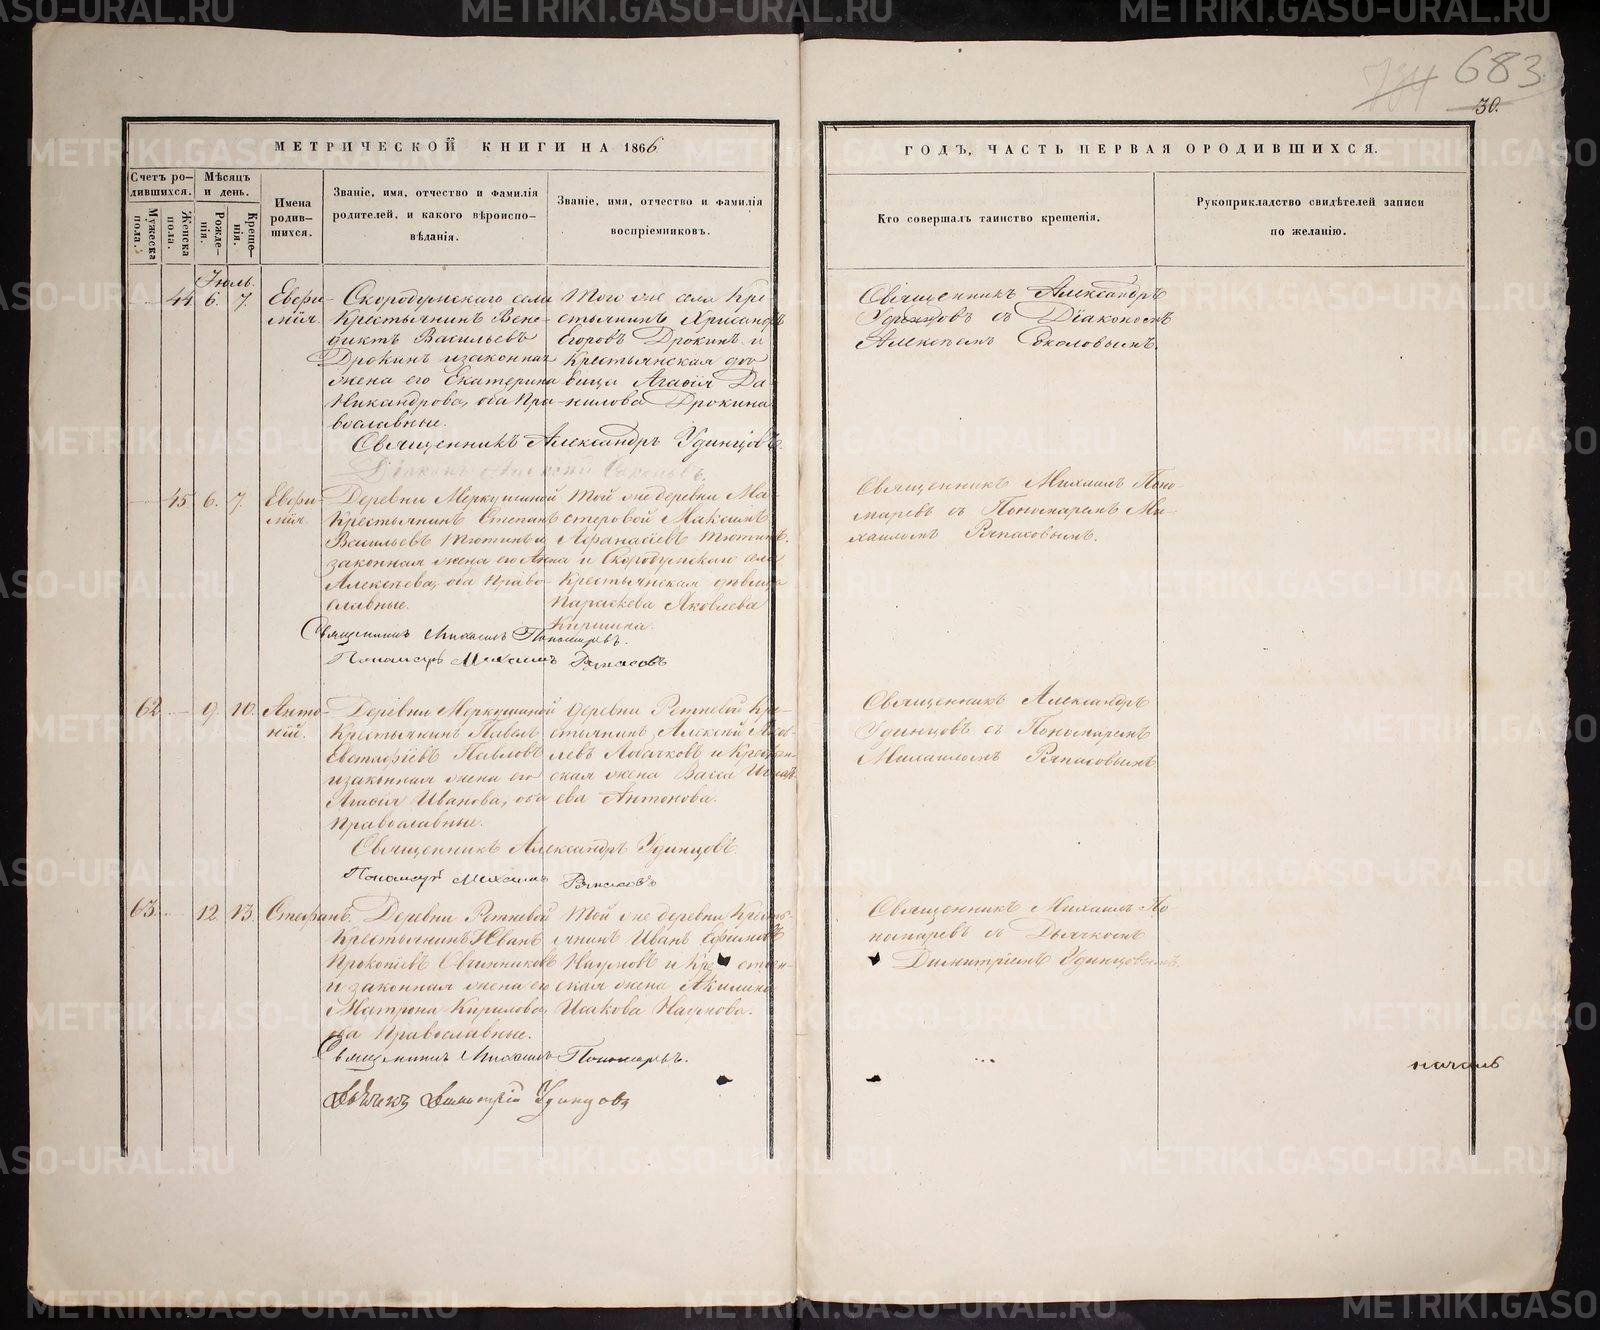 683
30.
МЕТРИЧЕСКОЙ КНИГИ НА 1866
ГОДЪ, ЧАСТЬ ПЕРВАЯ О РОДИВШИХСЯ.
Счетъ родившихся.
Мѣсяцъ и день.
Мужеска пола.
Женска пола.
Рожденія.
Крещенія.
Имена родившихся.
Званіе, имя, отчество и фамилія родителей, и какого вѣроисповѣданія.
Званіе, имя, отчество и фамилія воспріемниковъ.
Кто совершалъ таинство крещенія.
Рукоприкладство свидѣтелей записи по желанію.
Іюль.
44 6. 7. Евфимія.
Скородумскаго села
Крестьянинъ Вене-
диктъ Васильевъ
Дрокинъ и законная
жена его Екатерина
Никандрова, оба Пра-
вославные.
Того же села Кре-
стьянинъ Хрисанфъ
Егоровъ Дрокинъ и
Крестьянская
вица Агафія Да-
нилова Дрокина
Священникъ Александръ
Удинцовъ съ Діакономъ
Алексѣемъ Соколовымъ.
Священникъ Александръ Удинцовъ.
Діаконъ Алексѣй Соколовъ.
45 6. 7. Евфимія.
Деревни Меркушиной
Крестьянинъ Степанъ
Васильевъ Тютинъ и
законная жена его Анна
Алексѣева, оба Право-
славные.
Той же деревни Ма-
стеровой Максимъ
Афанасіевъ Тютинъ.
и Скородумскаго села
Крестьянская дѣвица
Параскева Яковлева
Священникъ Михаилъ Поно-
маревъ съ Пономаремъ Ми-
хаиломъ Ряпасовымъ.
Священникъ Михаилъ Пономаревъ.
Пономарь Михаилъ Ряпасовъ
62 9. 10. Антоній.
Деревни Меркушиной
Крестьянинъ Павелъ
Евстафіевъ Павловъ
и законная жена его
Агафія Иванова, оба
Православные.
деревни Ретневой Кре-
стьянинъ Алексѣй Яков-
левъ и Крестьян-
ская жена Васса
ева Антонова.
Священникъ Александръ
Удинцовъ съ Пономаремъ
Михаиломъ Ряпасовымъ
Священникъ Александръ Удинцовъ.
Пономарь Михаилъ Ряпасовъ
63. 12 13. Стефанъ.
Деревни Ретневой
Крестьянинъ Иванъ
Прокопіевъ Овчинниковъ
и законная жена его
Матрона Кирилова,
оба Православные.
Той же деревни Кресть-
янинъ Иванъ Ефимовъ
Наумовъ и Крестьян-
ская жена Акилина
Исакова Наумова.
Священникъ Михаилъ По-
номаревъ съ Дьячкомъ
Димитріемъ Удинцовымъ.
Священникъ Михаилъ Пономаревъ.
Дьячекъ Димитрій Удинцовъ